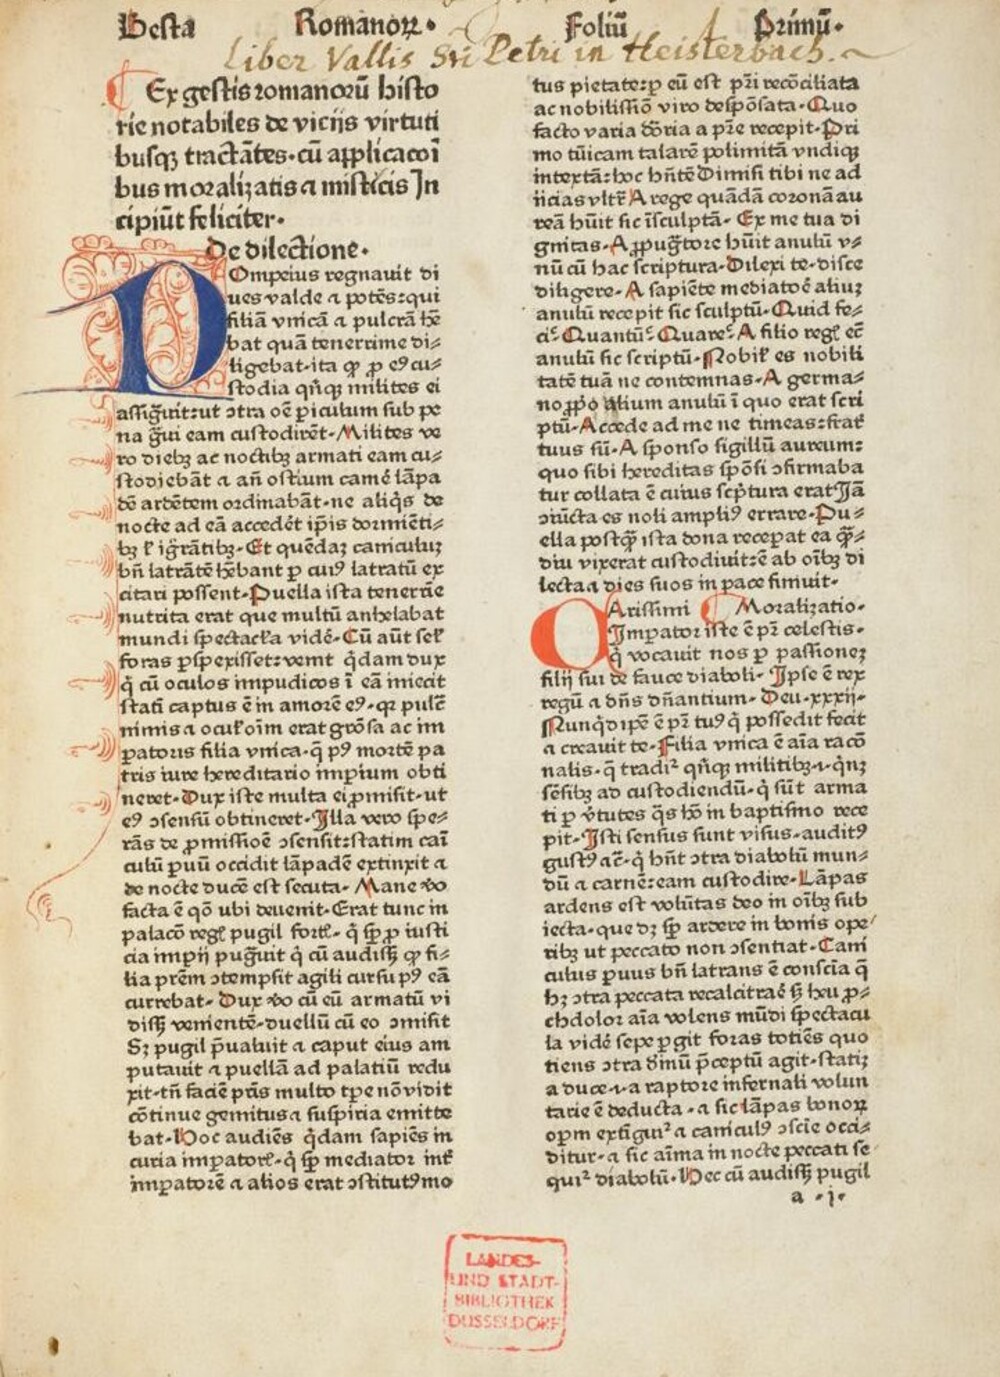 Gesta Romanoꝝ. Foliū Primū.
Liber Vallis Sti Petri in Heisterbach.
Ex gestis romanorū histo
rie notabiles de vicijs virtuti
busqꝫ tractātes. cū applicacōi
bus moralizatis a misticis In
cipiūt feliciter.
De dilectione.
POmpeius regnauit di
ues valde a potēs: qui
filiā vnicā a pulcrā hē
bat quā tenerrime di⸗
ligebat. ita ꝙ ꝓ eꝯ cu⸗
stodia qn̄qꝫ milites ei
assig̅rit: ut ↄtra oē ꝑiculum sub pe
na g̅ui eam custodirēt. Milites ve
ro diebꝫ ac noctibꝫ armati eam cu⸗
stodiebāt a añ ostium camē lāpa
dē ardētem ordinabāt. ne aliq̇s de
nocte ad eā accedēt ip̄is dormiēti⸗
bꝫ ł ig̅rātibꝫ. Et quēdaꝫ caniculuꝫ
bñ latrātē hēbant ꝑ cuiꝯ latratū ex
citari possent. Puella ista tenerrīe
nutrita erat que multū anhelabat
mundi spectacła vidē. Cū aūt seł
foras ꝑspexisset: venit q̇dam dux
q̇ cū oculos impudicos ī eā iniecit
statī captus ē in amorē eꝯ. qꝛ pulcē
nimis a ocuł oīm erat grōsa ac im
patoris filia vnica. q̄ pꝯ mortē pa
tris iure hereditario imꝑium obti
neret. Dux iste multa ei ꝓmisit. ut
eꝯ ↄsensū obtineret. Illa vero spe⸗
rās de ꝓmissiōe ↄsensit: statim cai
culū ꝑuū occidit lāpadē extinxit a
de nocte ducē est secuta. Mane ꝟo
facta ē qō ubi deuenit. Erat tunc in
palacō regꝭ pugil fortꝭ. q̇ sꝑ ꝓ iusti
cia imꝑij pug̅uit q̇ cū audissꝫ ꝙ fi⸗
lia prēm ↄtempsit agili cursu pꝯ eā
currebat. Dux ꝟo cū eū armatū vi
dissꝫ venientē. duellū cū eo ↄmisit
Sꝫ pugil p̄ualuit a caput eius am
putauit a puellā ad palatiū redu
xit. tñ faciē pr̄is multo tꝑe nō vidit
cōtinue gemitus a suspiria emitte
bat. Hoc audiēs q̇dam sapiēs in
curia impatorꝭ. q̇ sꝑ mediator int̄
imperatorē a alios erat ↄstitutꝯ mo
tus pietate: ꝑ eū est pr̄i recōciliata
ac nobilissiō viro despōsata. Quo
facto varia dōria a pr̄e recepit. Pri
mo tūicam talarē polimitā vndiqꝫ
intextā: hoc hñtē Dimisi tibi ne ad
ijcias vltr̄ A rege quādā coronā au
reā hūit sic īsculptā. Ex me tua di
gnitas. A ꝓpug̅tore hūit anulū v⸗
nū cū hac scriptura. Dilexi te. disce
diligere. A sapiēte mediatoē aliuꝫ
anulū recepit sic sculptū. Quid fe⸗
ci? Quantū? Quare? A filio regꝭ eē
anulū sic scriptū. Nobił es nobili
tatē tuā ne contemnas. A germa⸗
no ꝓpo alium anulū ī quo erat scri
ptū. Accede ad me ne timeas: frat̄
tuus sū. A sponso sigillū aureum:
quo sibi hereditas spōsi ↄfirmaba
tur collata ē cuius scp̄tura erat Jā
ↄiūcta es noli ampliꝯ errare. Pu⸗
ella postꝙ̄ ista dona receperat ea ꝙ̄⸗
diu vixerat custodiuit: ē ab oībꝫ di
lecta a dies suos in pace finiuit.
CArissimi Moralizatio.
Imperator iste ē pr̄ celestis.
q̇ vocauit nos ꝑ passioneꝫ
filij sui de fauce diaboli. Ipse ē rex
regū a dñs dñantium. Deu. xxxij.
Nunq̇d ip̄e ē pr̄ tuꝯ q̇ possedit fecit
a creauit te. Filia vnica ē aīa racō
nalis. q̄ tradiꝰ qn̄qꝫ militibꝫ. i. qn̄ꝫ
sēsibꝫ ad custodiendū. q̇ sūt arma
ti ꝑ v̄tutes q̄s hō in baptismo rece
pit. Isti sensus sunt visus. auditꝯ
gustꝯ ac̄. q̇ hñt ↄtra diabolū mun⸗
dū a carnē: eam custodire. Lāpas
ardens est volūtas deo in oībꝫ sub
iecta. que dꝫ sꝑ ardere in bonis ope
ribꝫ ut peccato non ↄsentiat. Cani
culus ꝑuus bñ latrans ē conscīa q̄
hꝫ ↄtra peccata recalcitraē sꝫ heu ꝓ⸗
chdolor aīa volens mūdi spectacu
la vidē sepe ꝑgit foras totiēs quo
tiens ↄtra dīnū p̄ceptū agit. statiꝫ
a duce. i. a raptore infernali volun
tarie ē deducta. a sic lāpas bonoꝝ
oꝑm extīguiꝰ a caniculꝯ ↄscīe occi⸗
ditur. a sic aīma in nocte peccati se
quiꝰ diabolū. Hec cū audissꝫ pugil
a .j.
LANDES-
UND STADT-
BIBLIOTHEK
DÜSSELDORF